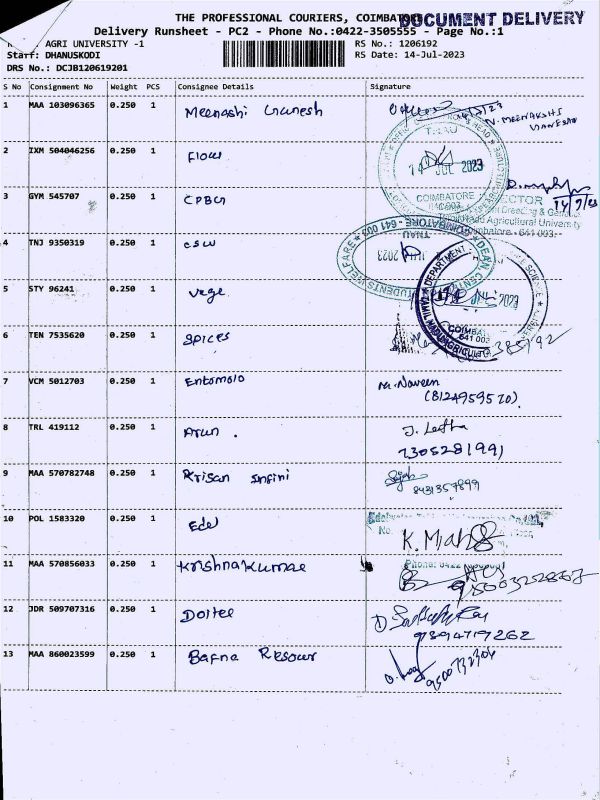 THE PROFESSIONAL COURIERS, COIMBATORE
DOCUMENT DELIVERY
Delivery Runsheet - PC2 - Phone No.:0422-3505555 - Page No.:1
AGRI UNIVERSITY -1
RS No.: 1206192
Staff: DHANUSKODI
RS Date: 14-Jul-2023
DRS No.: DCJB120619201
S No Consignment No Weight PCS Consignee Details Signature
1 MAA 103096365 0.250 1 Meenashi Ganesh
N. MEENAKSHI
GANESAN
2 IXM 504046256 0.250 1 Flow
TNAU
14 JUL 2023
COIMBATORE
641 003
3 GYM 545707 0.250 1 CPBG
DIRECTOR
14/7/23
Breeding & Genetics
Tamil Nadu Agricultural University
Coimbatore - 641 003.
4 TNJ 9350319 0.250 1 CSW
DEAN, STUDENTS WELFARE ★ COIMBATORE - 641 003
TNAU
JUL 2023
5 STY 96241 0.250 1 vege
DEPARTMENT
TAMIL NADU AGRICULTURAL
2023
COIMBATORE
641 003
6 TEN 7535620 0.250 1 spices
7 VCM 5012703 0.250 1 Entomolo
M. Naveen
(8124959520).
8 TRL 419112 0.250 1 Arun .
J. Letha
7305281991
9 MAA 570782748 0.250 1 Krisan Infini
8431357899
10 POL 1583320 0.250 1 Edel
Edelweiss
No.
11 MAA 570856033 0.250 1 Krishnakumar
Phone: 0422
12 JDR 509707316 0.250 1 Doitee
9894719262
13 MAA 860023599 0.250 1 Bafna Resour